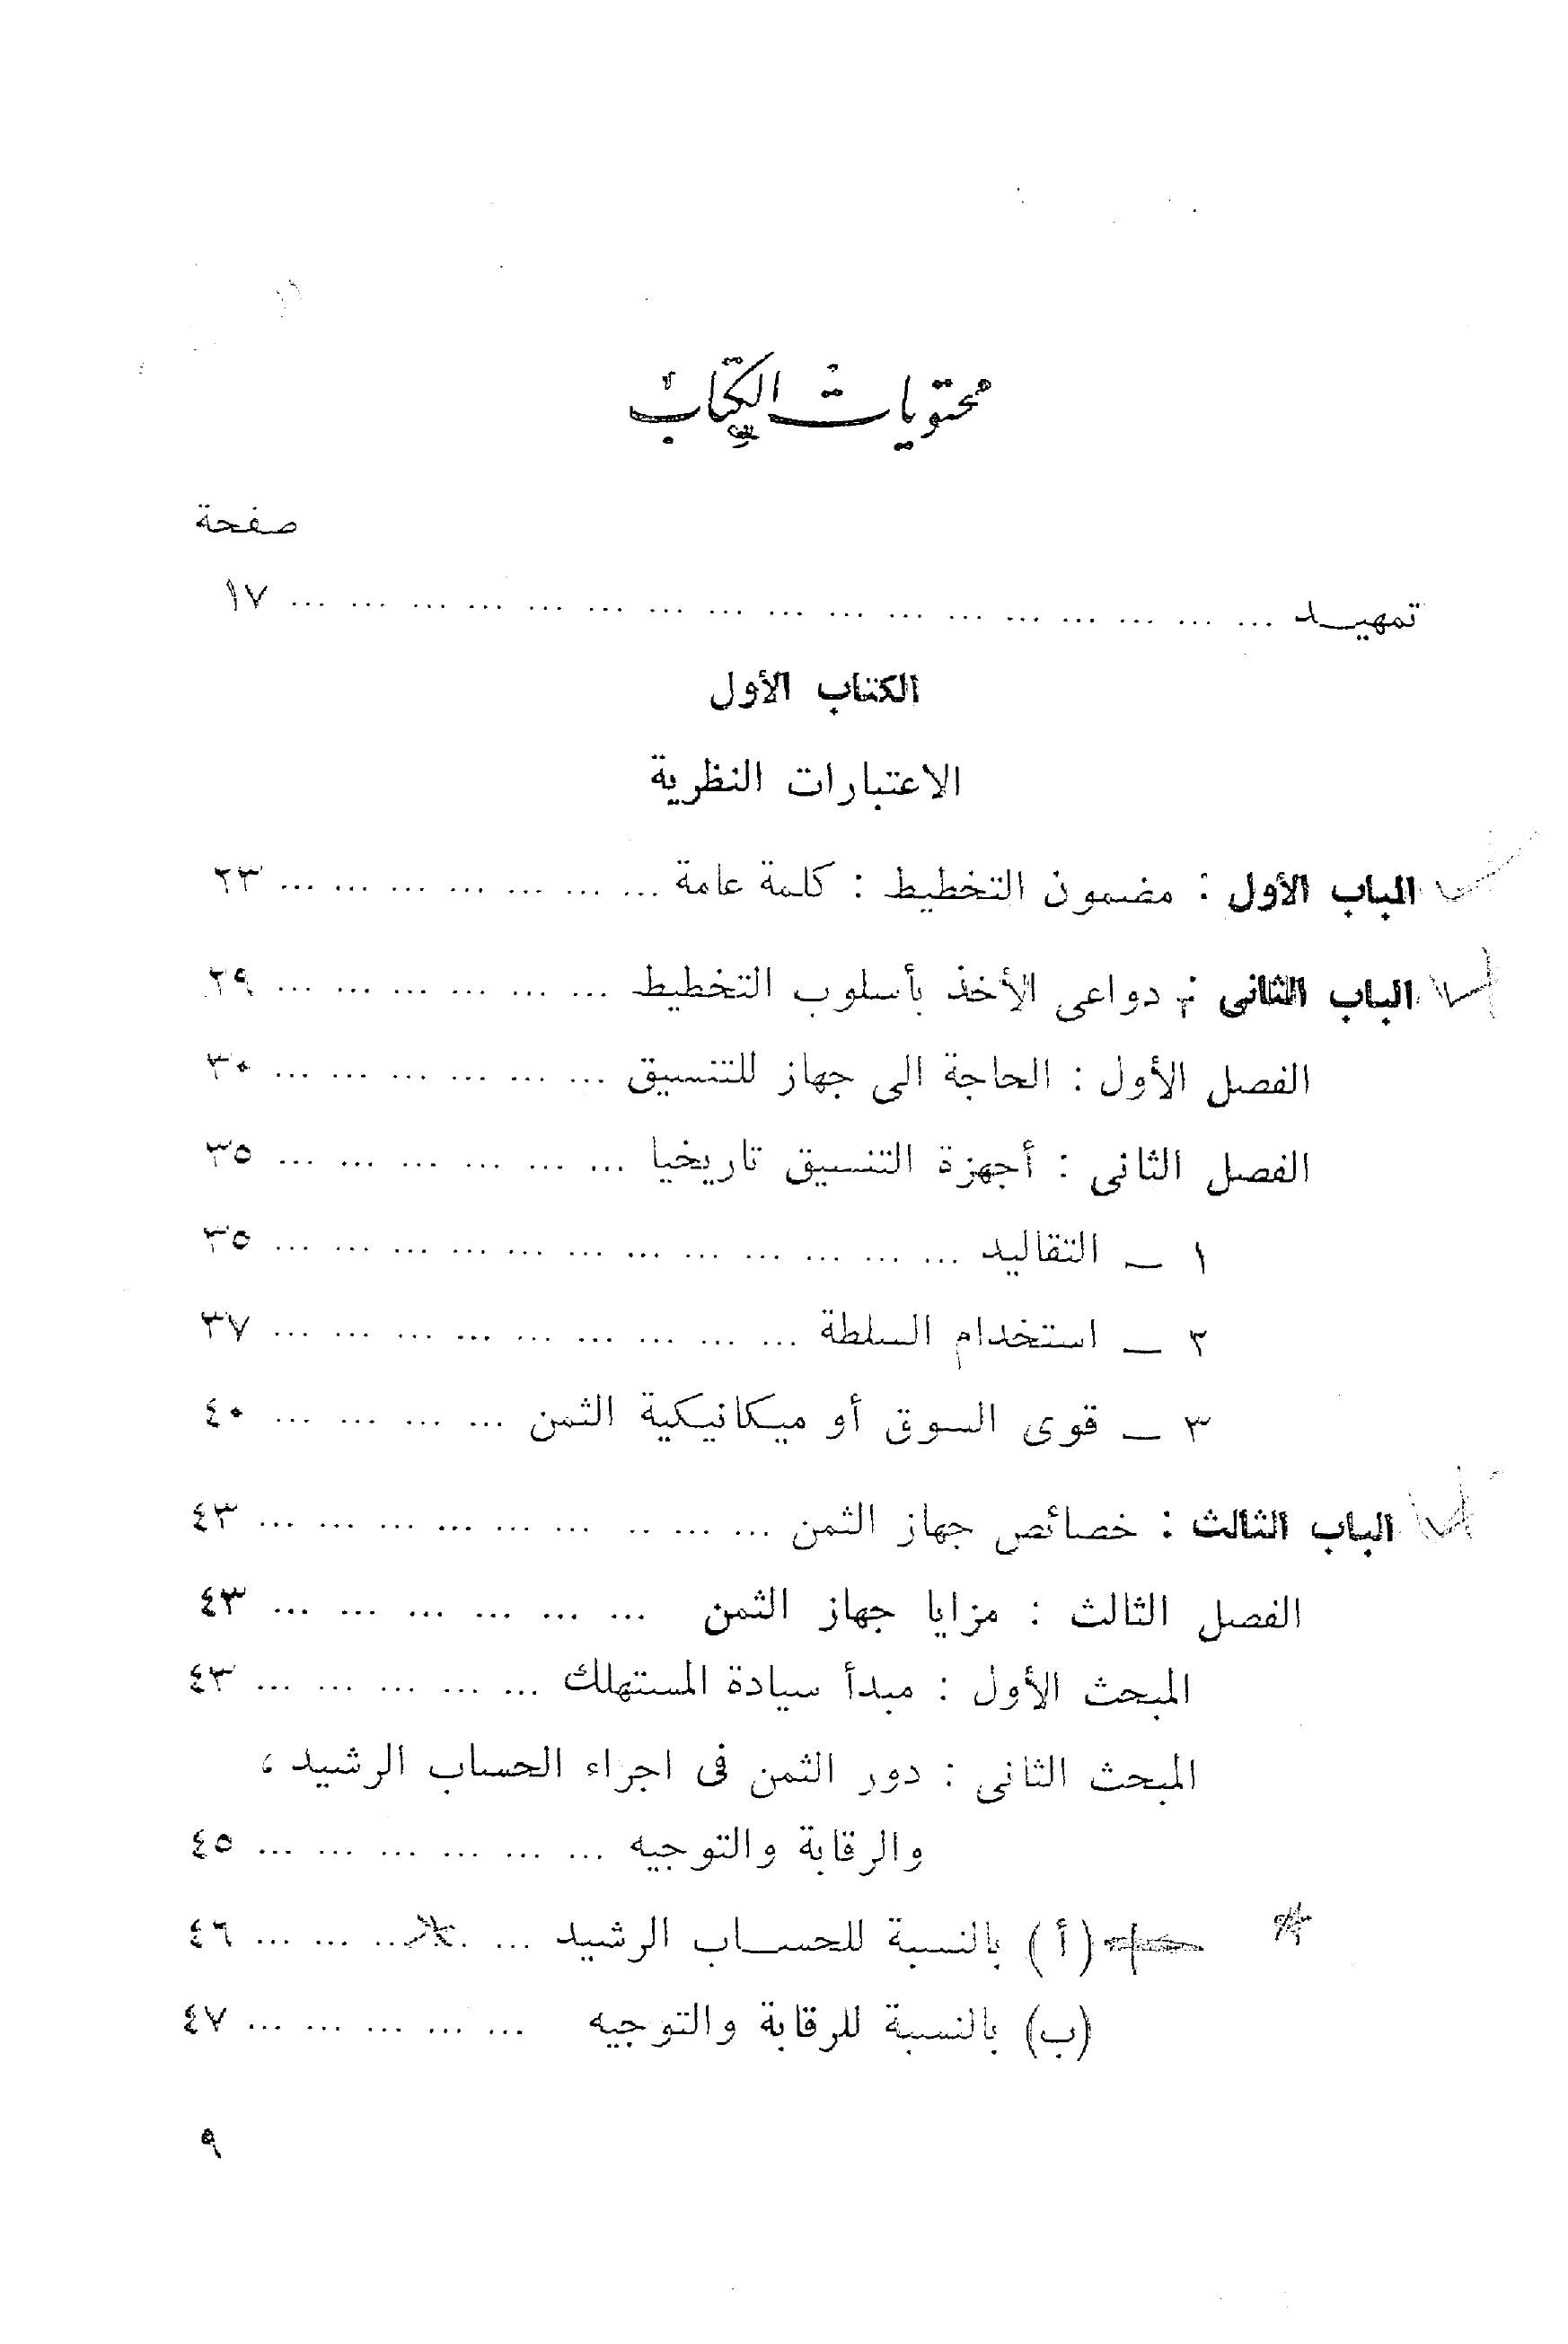 محتويات الكتاب
صفحة
تمهيــد ... ... ... ... ... ... ... ... ... ... ... ... ... ... ... ... ... ١٧
الكتاب الأول
الاعتبارات النظرية
الباب الأول : مضمون التخطيط : كلمة عامة ... ... ... ... ... ... ... ٢٣
الباب الثانى : دواعى الأخذ بأسلوب التخطيط ... ... ... ... ... ... ٢٩
الفصل الأول : الحاجة الى جهاز للتنسيق ... ... ... ... ... ... ٣٠
الفصل الثانى : أجهزة التنسيق تاريخيا ... ... ... ... ... ... ٣٥
١ ــ التقاليد ... ... ... ... ... ... ... ... ... ... ... ... ٣٥
٢ ــ استخدام السلطة ... ... ... ... ... ... ... ... ... ٣٧
٣ ــ قوى السوق أو ميكانيكية الثمن ... ... ... ... ٤٠
الباب الثالث : خصائص جهاز الثمن ... ... .. ... ... ... ... ... ... ٤٣
الفصل الثالث : مزايا جهاز الثمن ... ... ... ... ... ... ٤٣
المبحث الأول : مبدأ سيادة المستهلك ... ... ... ... ... ٤٣
المبحث الثانى : دور الثمن فى اجراء الحساب الرشيد ،
والرقابة والتوجيه ... ... ... ... ... ... ٤٥
(أ) بالنسبة للحســاب الرشيد ... ... ... ... ... ٤٦
(ب) بالنسبة للرقابة والتوجيه ... ... ... ... ... ٤٧
٩